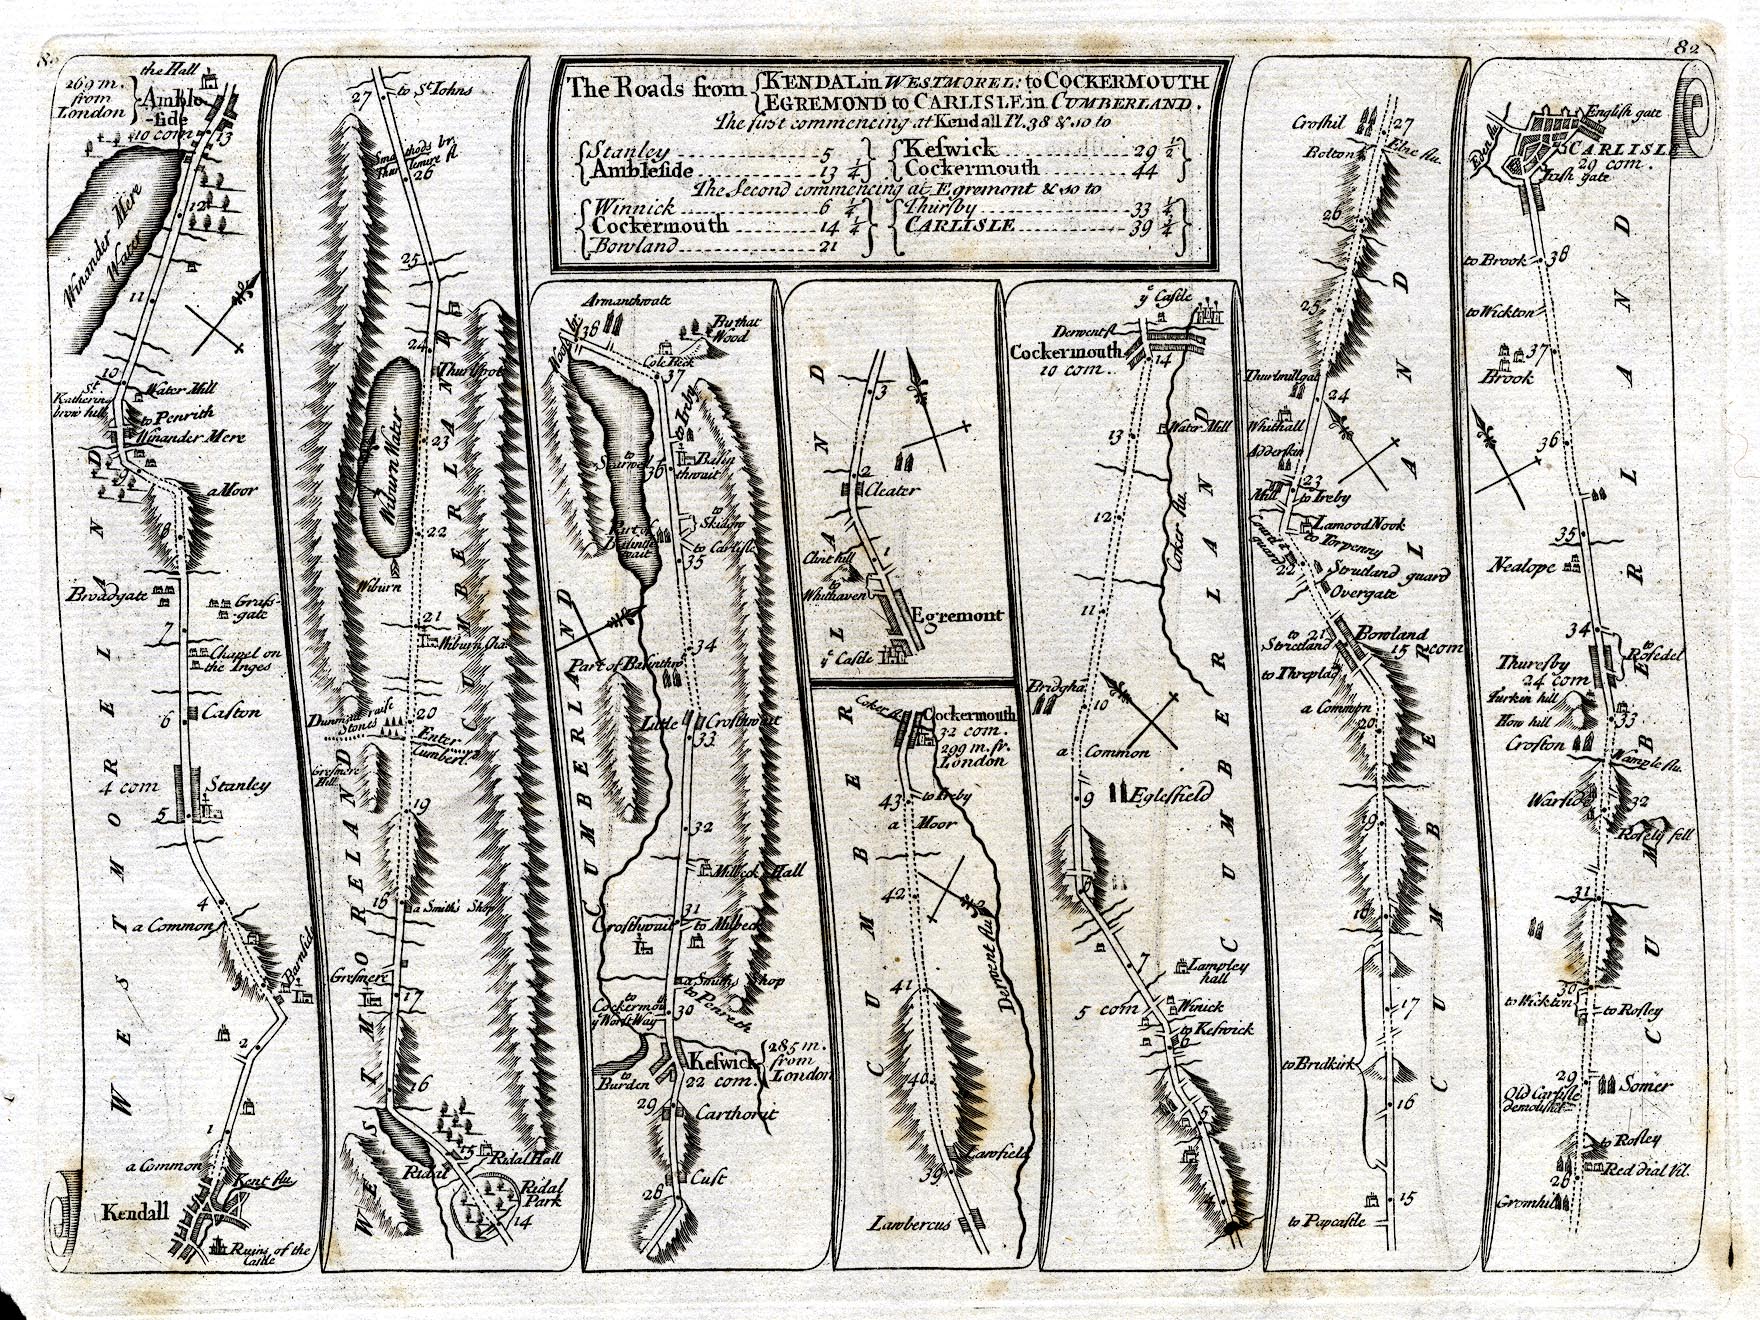 82
The Roads from
KENDAL in WESTMOREL: to COCKERMOUTH
EGREMOND to CARLISLE in CUMBERLAND.
The first commencing at Kendall Pl. 38 & 10 to
Stanley 5
Ambleſide 13 1/4
Keſwick 29 1/2
Cockermouth 44
The Second commencing at Egremont & 10 to
Winnick 6 1/4
Cockermouth 14 1/4
Bowland 21
Thurſby 33 1/4
CARLISLE 39 1/4
the Hall
269 m.
from
London
Amble
-ſide
10 com
13
12
Winander Mere
Water
11
10
St
Katherin
brow hill
Water Mill
to Penrith
Winander Mere
9
a Moor
8
Broadgate
Graſs-
gate
7
Chapel on
the Inges
6
Caſton
4 com
Stanley
5
4
a Common
Barnſide
2
1
a Common
Kent flu.
Kendall
Ruins of the
Caſtle
WESTMORELAND
27
to St Iohns
26
25
24
Thurlſpot
23
Wiburn Water
22
Wiburn
21
Wiburn Cha
20
Dunmail raiſe
Stones
Enter
Cumberl.
Greſmere
Hill
19
18
a Smith's Shop
Greſmere
17
16
15
Ridal Hall
Ridal
Ridal
Park
14
WESTMORELAND
CUMBERLAND
Armanthwate
38
Birthat
Wood
Cole Beck
37
to Ireby
36
Baſin
thwait
to
Skidow
to Carliſle
35
34
Part of Baſinthw
Little Croſthwait
33
32
Millbeck Hall
31
Croſthwait
to Milbeck
a Smiths Shop
to Penreth
to
Cockermou
ye Worſt Way
30
Keſwick
22 com.
285 m.
from
London
to
Burden
29
Carthorit
Cuſt
28
CUMBERLAND
3
2
Cleater
1
Clint hill
to
Whithaven
Egremont
ye Caſtle
Coker flu
Cockermouth
32 com.
299 m. fr.
London
43
to Ireby
a Moor
42
Darwent flu
41
40
Lawfield
39
Lawbercus
CUMBERLAND
ye Caſtle
Derwent fl
Cockermouth
10 com.
14
13
Water Mill
12
Coker flu.
11
Bridgha
10
a Common
9
Egleſfield
8
7
Lampley
hall
5 com
Winick
to Keſwick
6
5
4
CUMBERLAND
Croſhil
27
Bolton
Elne flu.
26
25
Thurlmillgat
24
Whithall
Adderſkin
23
Mill
to Ireby
Lamood Nook
to Torpenny
22
Strutland guard
Overgate
to
Strietland
21
Bowland
15 com
to Threpland
a Common
20
19
18
17
to Bridkirk
16
15
to Papcaſtle
CUMBERLAND
82
Engliſh gate
Eden flu
CARLISLE
29 com.
Iriſh gate
to Brook
38
to Wickton
37
Brook
36
35
Nealope
34
to
Roſedel
Thureſby
24 com
Parkin hill
How hill
33
Croſton
Wample flu.
Warſide
32
Roſely fell
31
30
to Wickton
to Roſley
29
Somer
Old Carliſle
demoliſht
to Roſley
Red dial Vil.
28
Gromhil
CUMBERLAND